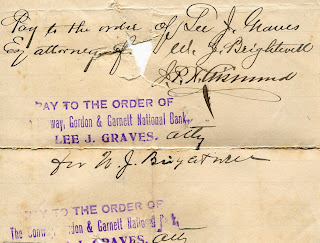 Pay to the order of Lee J. Graves
Esq attorney of W. J. Brightwell
PAY TO THE ORDER OF
way, Gordon & Garnett National Bank,
LEE J. GRAVES. Atty
for W. J. Brightwell
PAY TO THE ORDER OF
The Conway, Gordon & Garnett National Bank,
LEE J. GRAVES. Atty